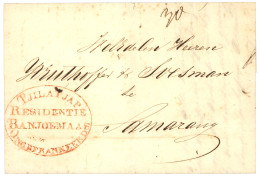 30
Weledelen Heeren
Winthoffer & Soesman
te
Samarang
TJILATJAP
RESIDENTIE
BANJOEMAAS
ONGEFRANKEERD